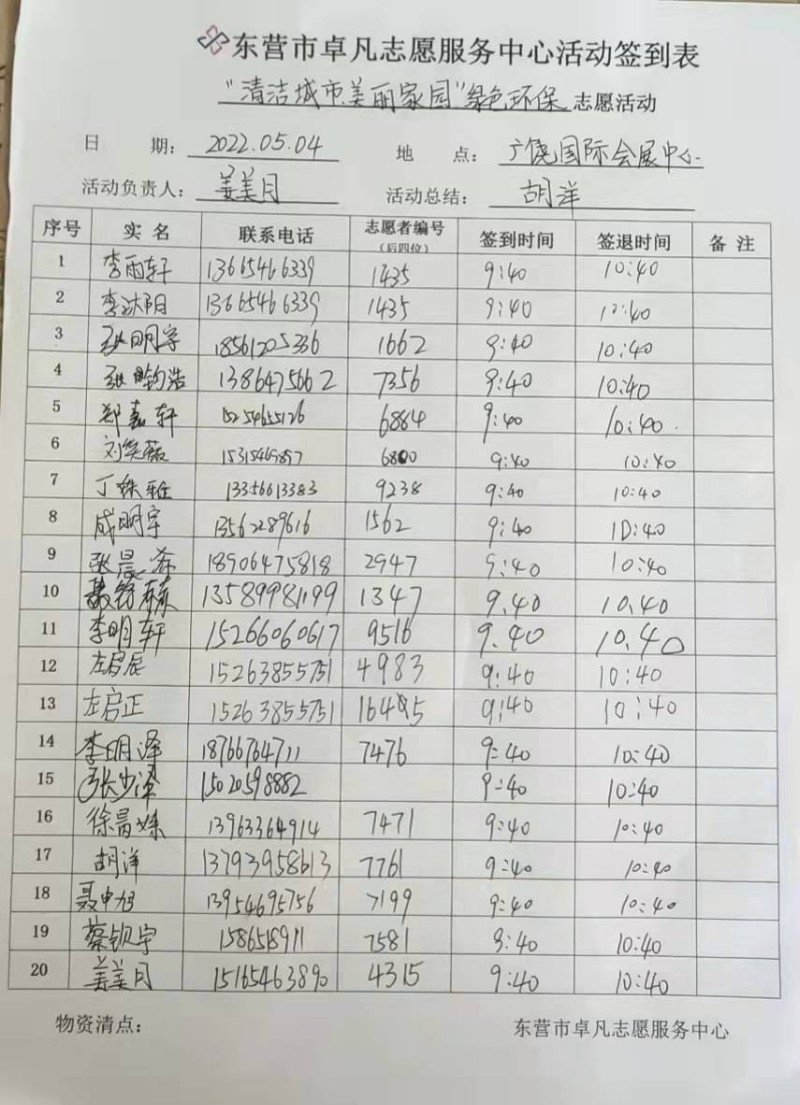 东营市卓凡志愿服务中心活动签到表
“清洁城市美丽家园”绿色环保 志愿活动
日 期: 2022.05.04 地 点: 广饶国际会展中心
活动负责人: 姜美月 活动总结: 胡洋
序号 实 名 联系电话 志愿者编号(后四位) 签到时间 签退时间 备 注
1 李雨轩 13615466339 1435 9:40 10:40
2 李沐阳 13665466339 1435 9:40 10:40
3 张明宇 18561205336 1662 9:40 10:40
4 张钧浩 13864756662 7356 9:40 10:40
5 郑嘉轩 15254655126 6884 9:40 10:40
6 刘笑薇 6800 9:40 10:40
7 丁姝雅 13356613383 9238 9:40 10:40
8 成明宇 13562289616 1562 9:40 10:40
9 张晨希 18906475818 2947 9:40 10:40
10 13589981199 1347 9.40 10.40
11 李明轩 15266060617 9516 9.40 10.40
12 左启辰 15263855751 4983 9:40 10:40
13 左启正 15263855751 16495 9:40 10:40
14 李明泽 18766764711 7476 9:40 10:40
15 张少泽 15020598882 9:40 10:40
16 徐晨姝 13963364914 7471 9:40 10:40
17 胡洋 13793958613 7761 9:40 10:40
18 聂申旭 13954695756 7199 9:40 10:40
19 蔡钦宇 1586518911 7581 9:40 10:40
20 姜美月 15165463890 4315 9:40 10:40
物资清点: 东营市卓凡志愿服务中心